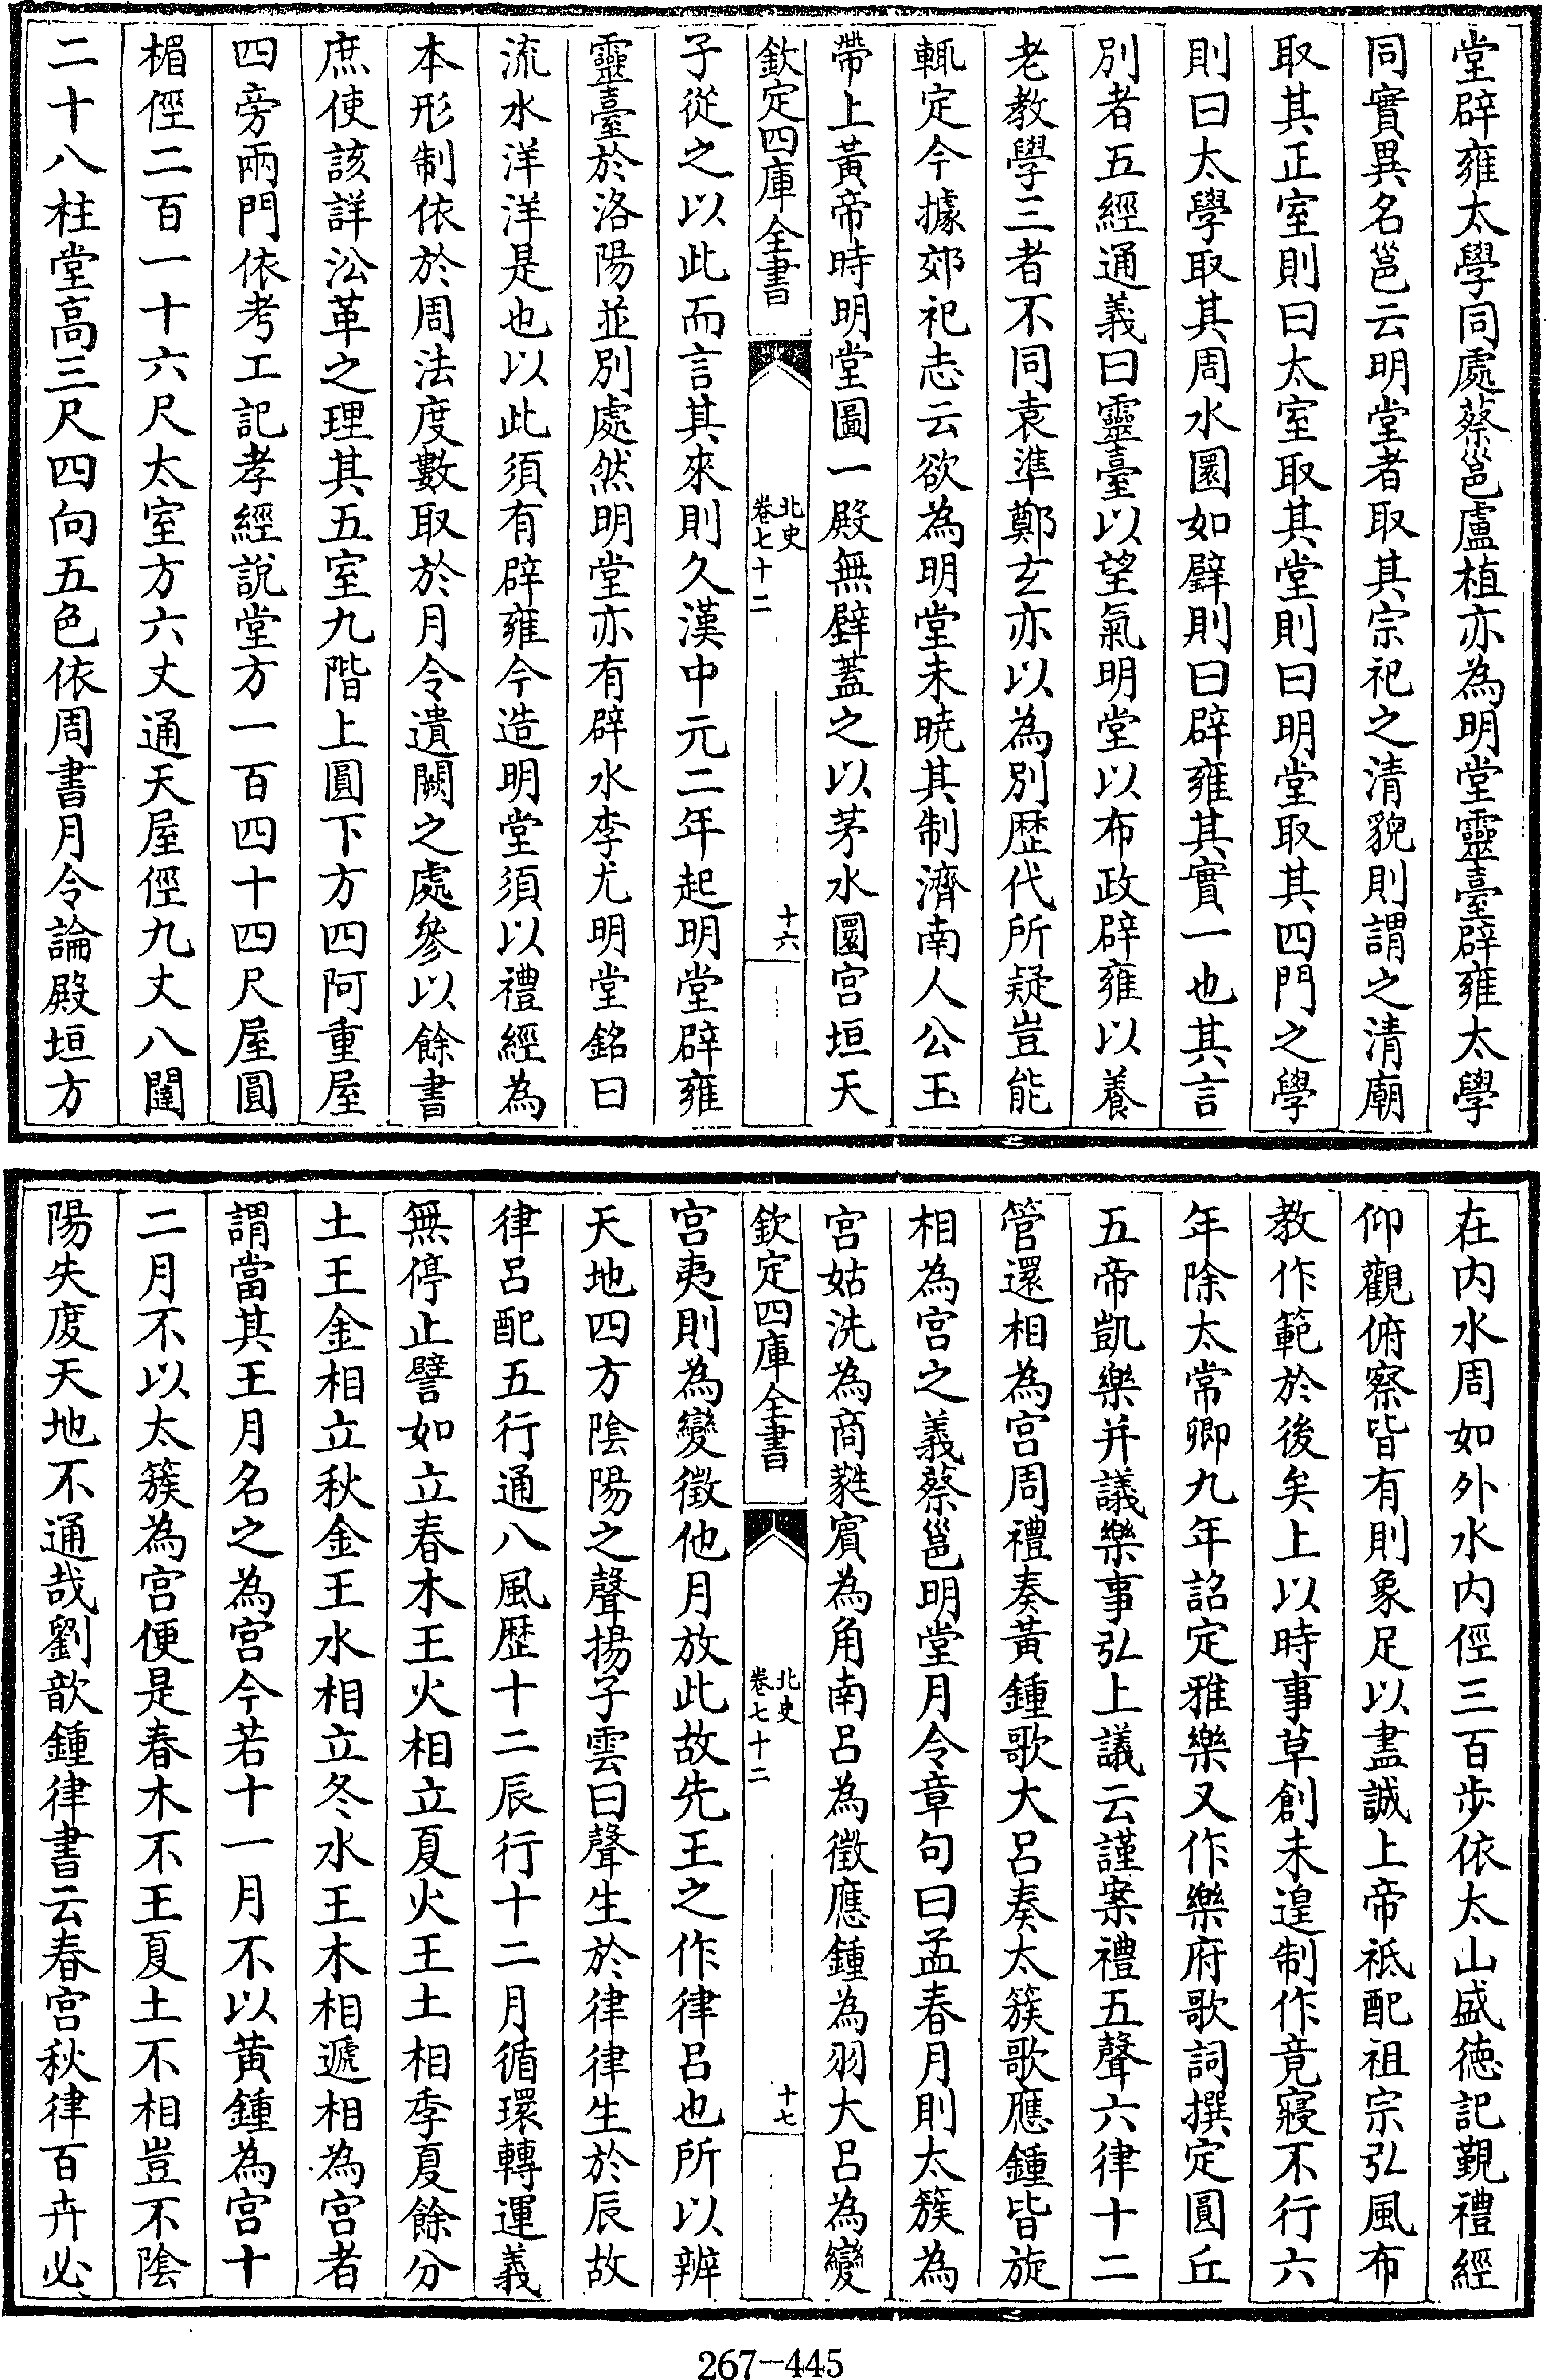 堂辟雍太學同處蔡邕盧植亦為明堂靈臺辟雍太學
同實異名邕云明堂者取其宗祀之清貌則謂之清廟
取其正室則曰太室取其堂則曰明堂取其四門之學
則曰太學取其周水圜如璧則曰辟雍其實一也其言
別者五經通義曰靈臺以望氣明堂以布政辟雍以養
老教學三者不同袁準鄭玄亦以為別歴代所疑豈能
輒定今據郊祀志云欲為明堂未曉其制濟南人公玉
帶上黃帝時明堂圖一殿無壁蓋之以茅水圜宫垣天
欽定四庫全書
北史
卷七十二
十六
子從之以此而言其來則久漢中元二年起明堂辟雍
靈臺於洛陽並別處然明堂亦有辟水李尤明堂銘曰
流水洋洋是也以此須有辟雍今造明堂須以禮經為
本形制依於周法度數取於月令遺闕之處參以餘書
庶使該詳沿革之理其五室九階上圓下方四阿重屋
四旁兩門依考工記孝經說堂方一百四十四尺屋圓
楣徑二百一十六尺太室方六丈通天屋徑九丈八闥
二十八柱堂高三尺四向五色依周書月令論殿垣方
在内水周如外水内徑三百步依太山盛德記觀禮經
仰觀俯察皆有則象足以盡誠上帝祗配祖宗弘風布
教作範於後矣上以時事草創未遑制作竟寢不行六
年除太常卿九年詔定雅樂又作樂府歌詞撰定圓丘
五帝凱樂并議樂事弘上議云謹案禮五聲六律十二
管還相為宫周禮奏黃鍾歌大呂奏太簇歌應鍾皆旋
相為宫之義蔡邕明堂月令章句曰孟春月則太簇為
宫姑洗為商蕤賓為角南呂為徵應鍾為羽大呂為變
欽定四庫全書
北史
卷七十二
十七
宫夷則為變徵他月放此故先王之作律呂也所以辨
天地四方陰陽之聲揚子雲曰聲生於律律生於辰故
律呂配五行通八風歴十二辰行十二月循環轉運義
無停止譬如立春木王火相立夏火王土相季夏餘分
土王金相立秋金王水相立冬水王木相遞相為宫者
謂當其王月名之為宫今若十一月不以黄鍾為宫十
二月不以太簇為宫便是春木不王夏土不相豈不陰
陽失度天地不通哉劉歆鍾律書云春宫秋律百卉必
267-445